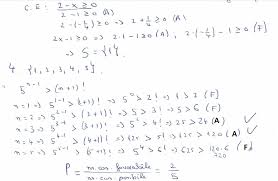 C.E: 2-x ≥ 0
2-1 ≥ 0 (A)
2-(-1/4) ≥ 0 => 2+1/4 ≥ 0 (A)
2x-1 ≥ 0 => 2·1-1 ≥ 0 (A), 2·(-1/4)-1 ≥ 0 (F)
=> S = {1}
4 {1,2,3,4,5}
5^{n-1} > (n+1)!
n=1 => 5^{1-1} > (1+1)! => 5^0 > 2! => 1 > 2 (F)
n=2 => 5^{2-1} > (2+1)! => 5^1 > 3! => 5 > 6 (F)
n=3 => 5^{3-1} > (3+1)! => 5^2 > 4! => 25 > 24 (A) ✓
n=4 => 5^{4-1} > (4+1)! => 5^3 > 5! => 125 > 120 (A) ✓
n=5 => 5^{5-1} > (5+1)! => 5^4 > 6! => 625 > 120·6 (F)
720
P = nr. cazuri favorabile / nr. cazuri posibile = 2/5